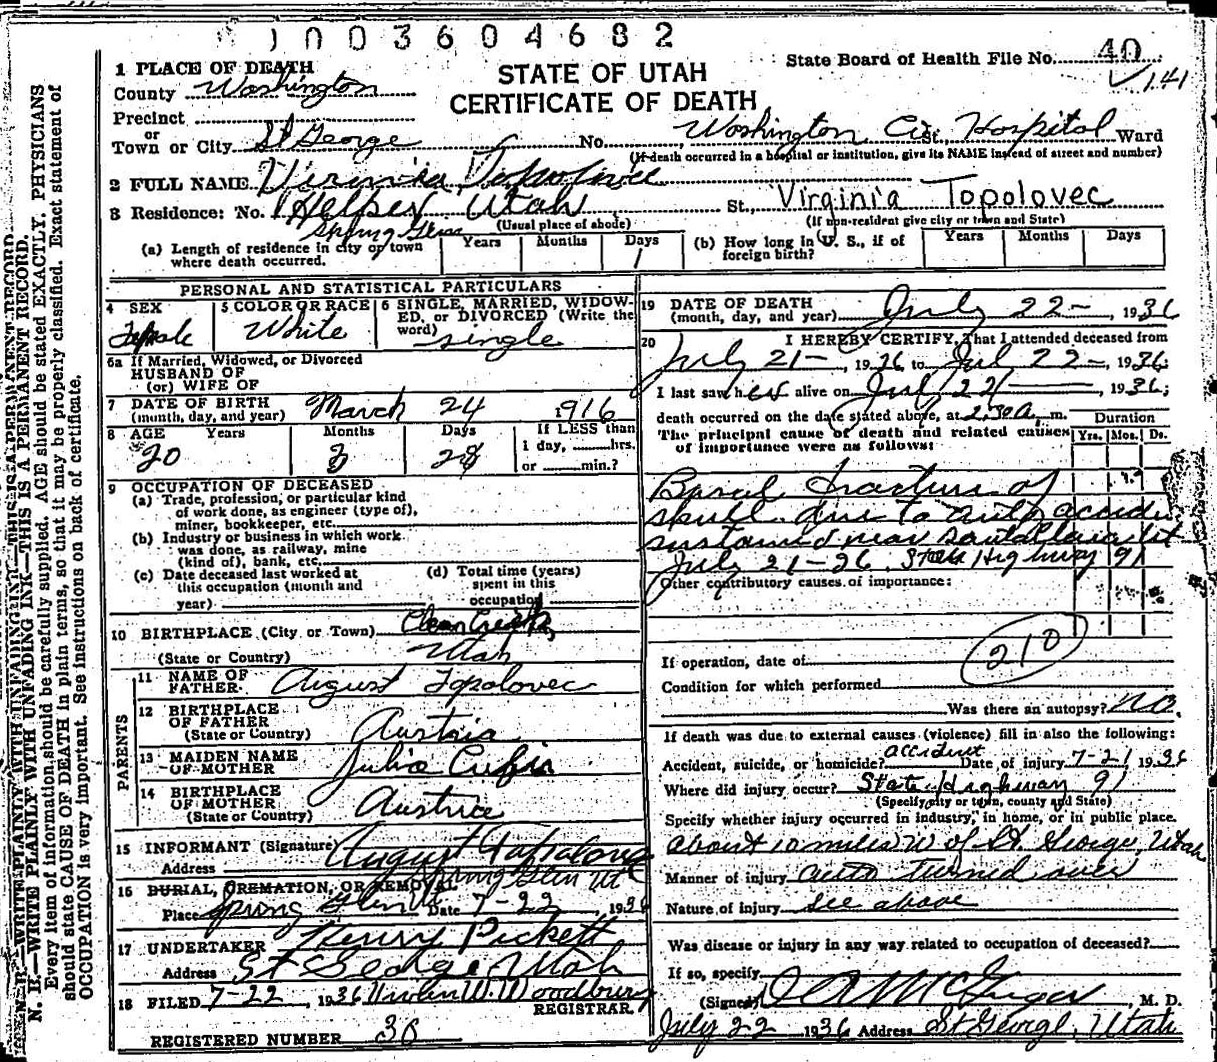 1003604682
State Board of Health File No. 40
141
STATE OF UTAH
CERTIFICATE OF DEATH
1 PLACE OF DEATH
County Washington
Precinct
or
Town or City St George No. Washington Co. St. Hospital Ward
(If death occurred in a hospital or institution, give its NAME instead of street and number)
2 FULL NAME Virginia Topolovec
Virginia Topolovec
3 Residence: No. Helper Utah St.,
Spring Glen
(Usual place of abode)
(If non-resident give city or town and State)
(a) Length of residence in city or town where death occurred. Years Months Days 1
(b) How long in U. S., if of foreign birth? Years Months Days
PERSONAL AND STATISTICAL PARTICULARS
4 SEX Female
5 COLOR OR RACE White
6 SINGLE, MARRIED, WIDOW-
ED, or DIVORCED (Write the
word) single
6a If Married, Widowed, or Divorced
HUSBAND OF
(or) WIFE OF
7 DATE OF BIRTH
(month, day, and year) March 24 1916
8 AGE Years Months Days
20 3 28
If LESS than
1 day, hrs.
or min.?
9 OCCUPATION OF DECEASED
(a) Trade, profession, or particular kind
of work done, as engineer (type of),
miner, bookkeeper, etc.
(b) Industry or business in which work
was done, as railway, mine
(kind of), bank, etc.
(c) Date deceased last worked at
this occupation (month and
year)
(d) Total time (years)
spent in this
occupation
10 BIRTHPLACE (City or Town) Clear Creek,
(State or Country) Utah
PARENTS
11 NAME OF
FATHER August Topolovec
12 BIRTHPLACE
OF FATHER
(State or Country) Austria
13 MAIDEN NAME
OF MOTHER Julia
14 BIRTHPLACE
OF MOTHER
(State or Country) Austria
15 INFORMANT (Signature) August Topolovec
Address Spring Glen Ut
16 BURIAL, CREMATION, OR REMOVAL
Place Spring Glen Ut Date 7-22, 1936
17 UNDERTAKER Henry Pickett
Address St George Utah
18 FILED 7-22, 1936 W. Woodbury
REGISTRAR.
REGISTERED NUMBER 36
19 DATE OF DEATH
(month, day, and year) July 22-, 1936
20 I HEREBY CERTIFY, That I attended deceased from
July 21-, 1936 to July 22-, 1936;
I last saw her alive on July 22, 1936;
death occurred on the date stated above, at 2:30 a. m.
The principal cause of death and related causes
of importance were as follows:
Duration
Yrs. Mos. Ds.
Basal fracture of
skull due to auto accident
sustained near Santa Clara Ut
July 21-36. State Highway 91
Other contributory causes of importance:
210
If operation, date of
Condition for which performed
Was there an autopsy? No.
If death was due to external causes (violence) fill in also the following:
Accident, suicide, or homicide? accident Date of injury 7-21 1936
Where did injury occur? State Highway 91
(Specify city or town, county and State)
Specify whether injury occurred in industry, in home, or in public place.
about 10 miles W of St. George, Utah
Manner of injury auto turned over
Nature of injury see above
Was disease or injury in any way related to occupation of deceased?
If so, specify
(Signed) McGregor, M. D.
July 22 1936 Address St George, Utah
N. B.—WRITE PLAINLY WITH UNFADING INK—THIS IS A PERMANENT RECORD.
Every item of information should be carefully supplied. AGE should be stated EXACTLY. PHYSICIANS
should state CAUSE OF DEATH in plain terms, so that it may be properly classified. Exact statement of
OCCUPATION is very important. See instructions on back of certificate.